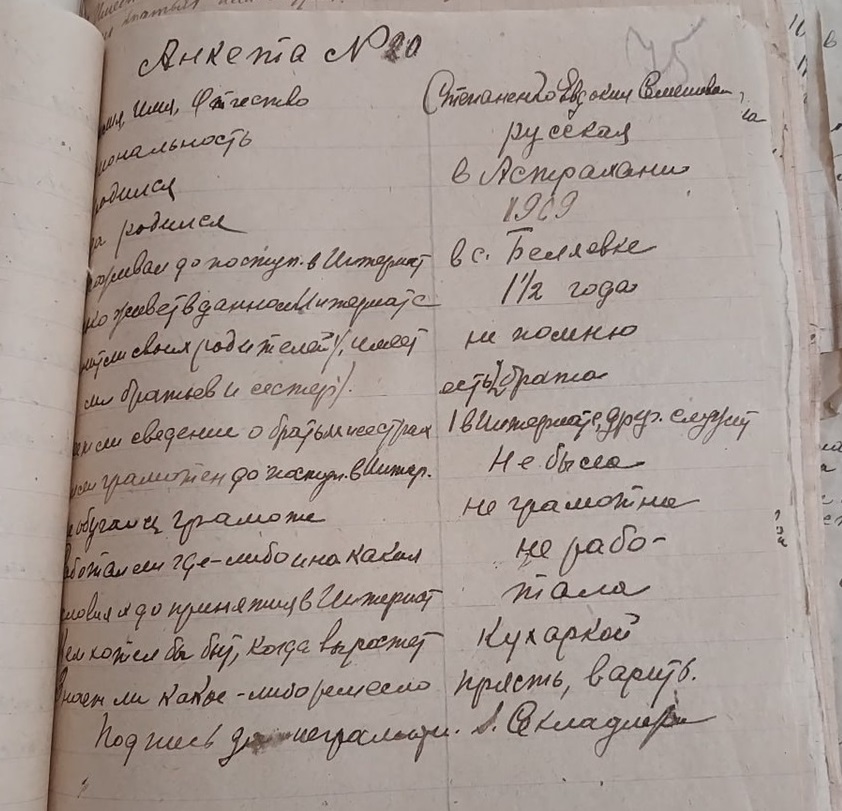 Анкета № 20
75
имя, Отчество Степаненко Евдокия Семеновна
русская
в Астрахани
родился 1909
до поступ. в Интернат в с. Беляевке
живет в данном Интернате 1 1/2 года
своих родителей), имеет не помню
ли братьев и сестер). есть 2 брата
ли сведение о братьях и сестрах 1 в Интернате, друг. служит
грамотен до поступ. в Интер. Не была
грамоте не грамотна
где-либо и на каких не рабо-
до принятия в Интернат тала
хотел бы быть, когда вырастет Кухаркой
ли какое-либо ремесло прясть, варить.
Подпись